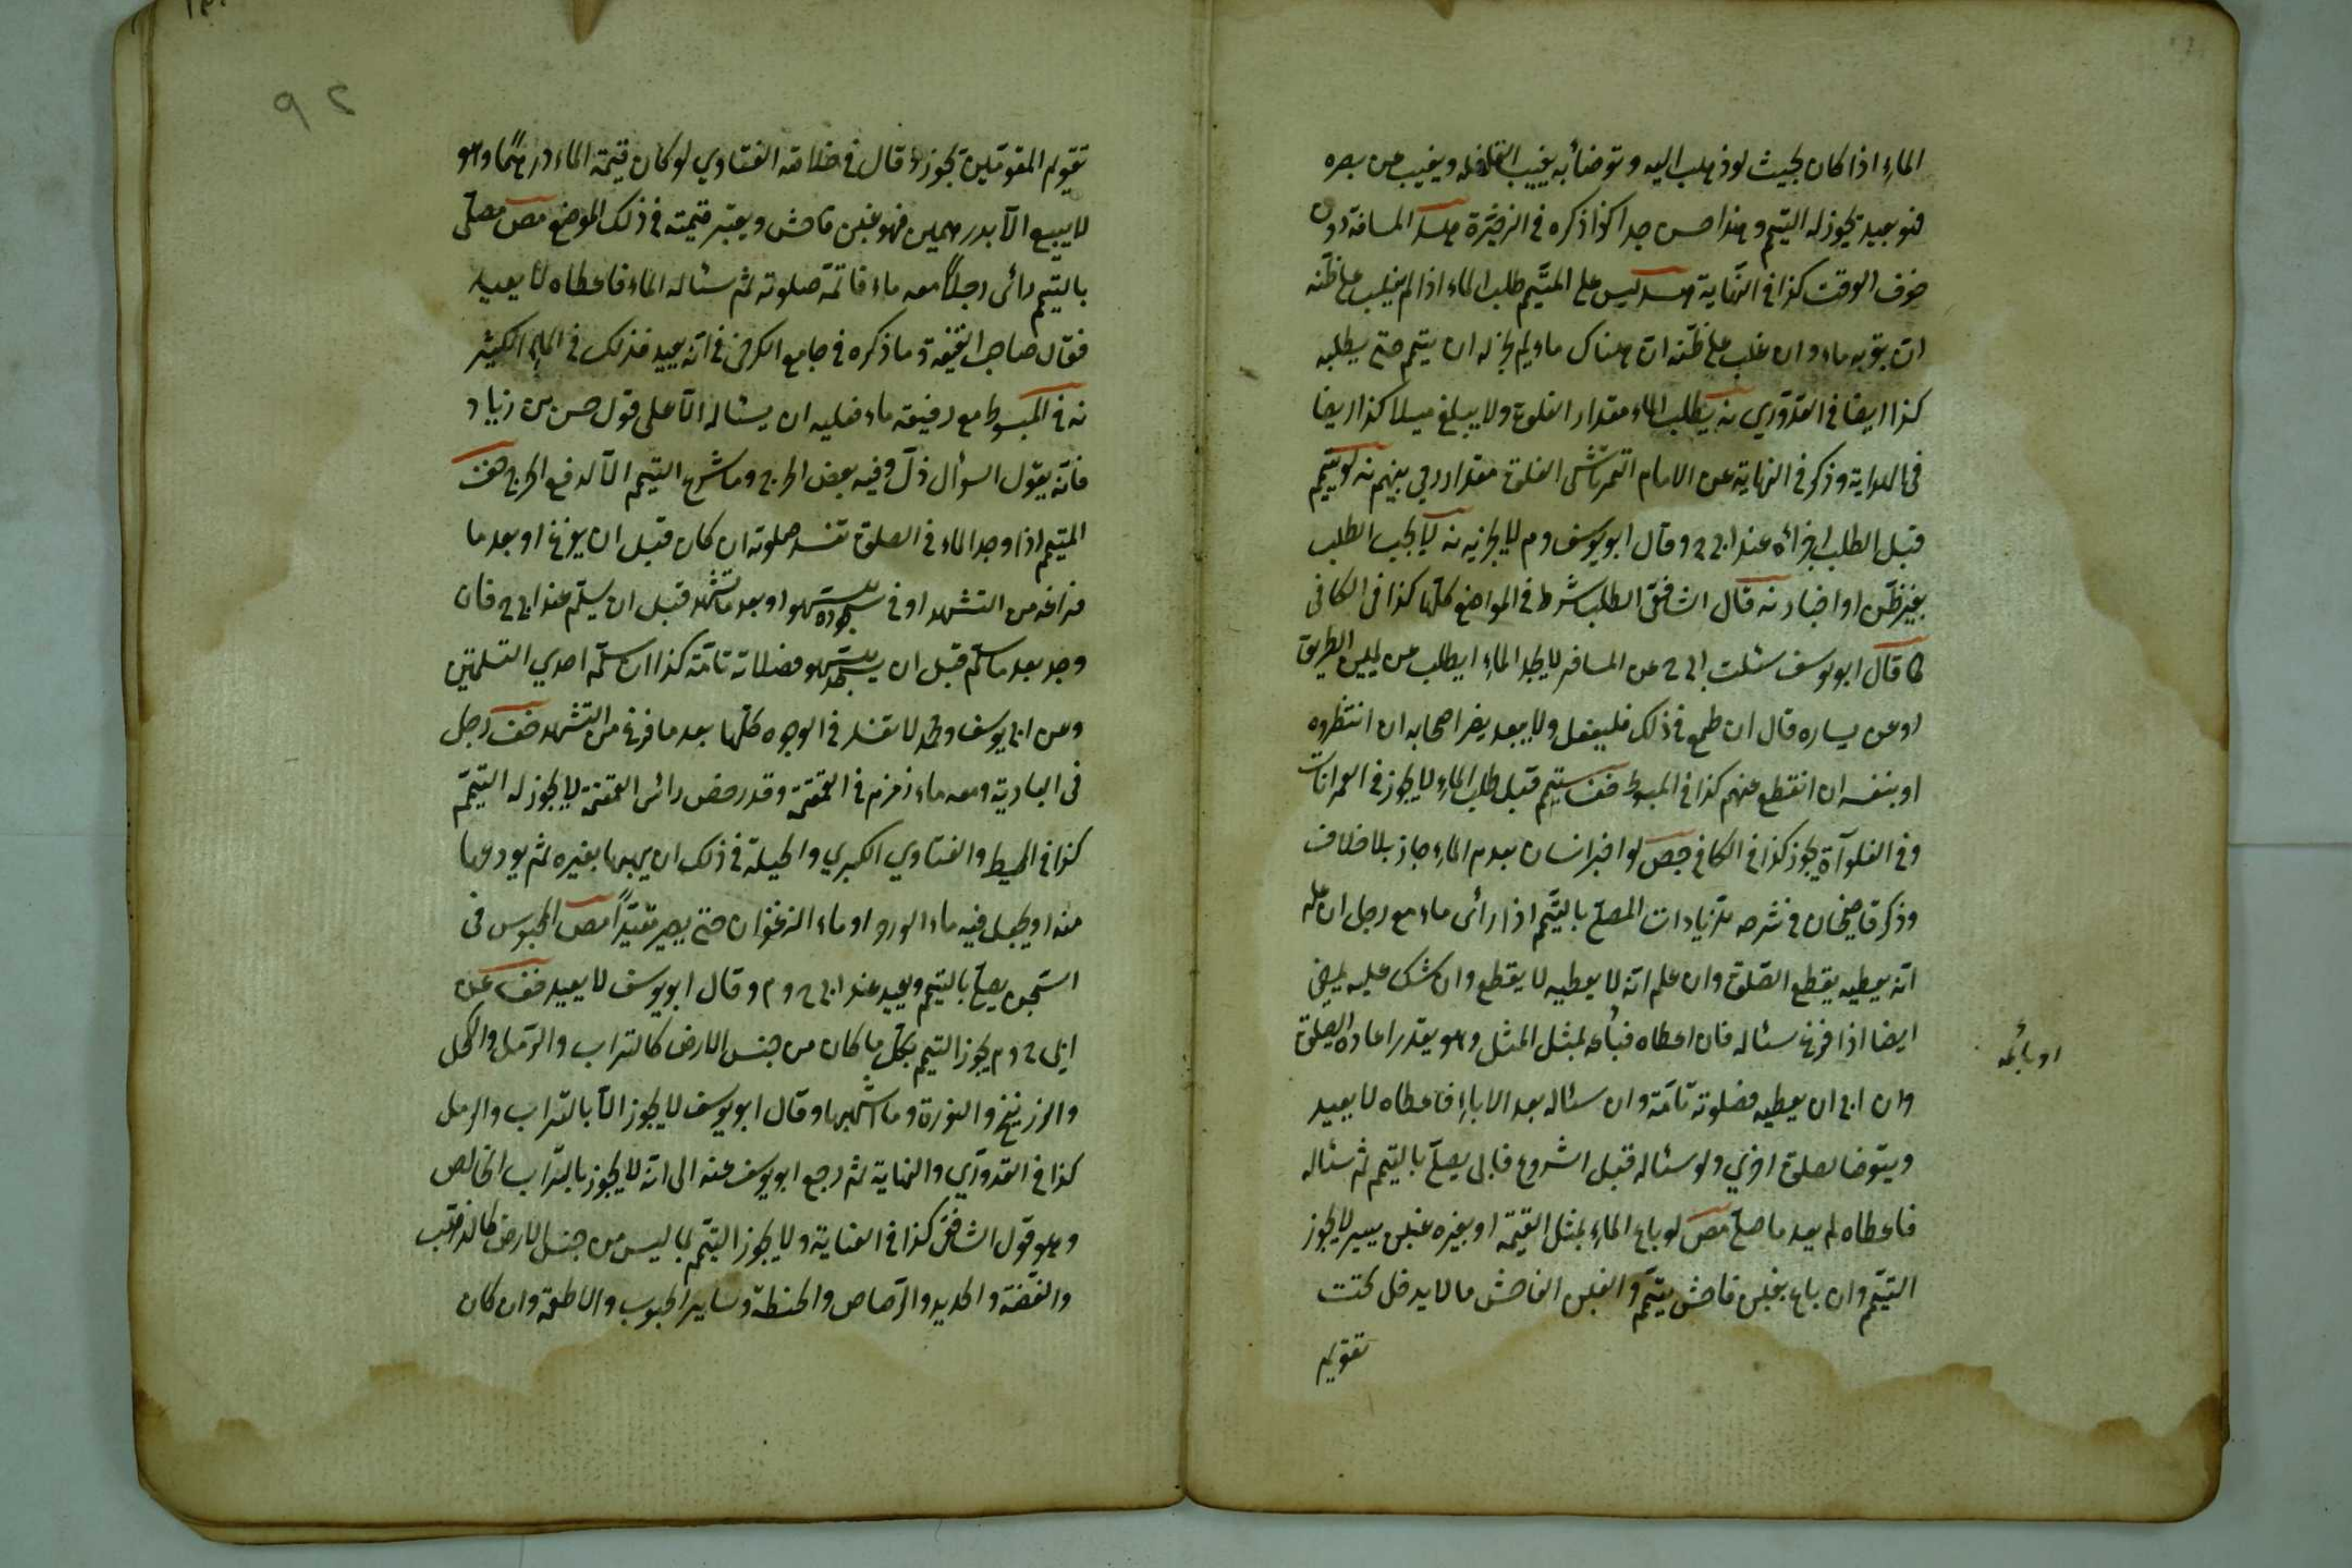 الماء اذا كان بحيث لو ذهب اليه وتوضأ به يغيب القافلة ويغيب عن بصره
فهو بعيد يجوز له التيمم وهذا حسن جدا كذا ذكره في الذخيرة هد المسافة دون
خوف الوقت كذا في النهاية هد ليس على المتيمم طلب الماء اذا لم يغلب على ظنه
ان بقربه ماء وان غلب على ظنه ان هناك ماء لم يجز له ان يتيمم حتى يطلبه
كذا ايضا في القدوري نه يطلب الماء مقدار الغلوة ولا يبلغ ميلا كذا ايضا
في الهداية وذكر في النهاية عن الامام التمرتاشي الغلوة مقدار رمي سهم نه لو تيمم
قبل الطلب اجزأه عند ابي ح وقال ابو يوسف و م لا يجزيه نه لا يجب الطلب
بغير ظن او اخبار نه قال الشافعي الطلب شرط في المواضع كلها كذا في الكافي
كا قال ابو يوسف سئلت ابا ح عن المسافر لا يجد الماء ايطلب عن يمين الطريق
او عن يساره قال ان طمع في ذلك فليفعل ولا يبعد يضر اصحابه ان انتظروه
او بنفسه ان انقطع عنهم كذا في المبسوط فف يتيمم قبل طلب الماء لا يجوز في العمرانات
وفي الفلوات يجوز كذا في الكافي جص لو اخبر انسان بعدم الماء جاز بلا خلاف
وذكر قاضيخان في شرحه للزيادات المصلي بالتيمم اذا رائى ماء مع رجل ان علم
انه يعطيه يقطع الصلوة وان علم انه لا يعطيه لا يقطع وان شك عليه يمضي
ايضا اذا فرغ سئاله فان اعطاه فباعه بمثل المثل وهو يقدر اعاده الصلوة
او باعه
وان ابى ان يعطيه فصلوته تامة وان سئاله بعد الاباء فاعطاه لا يعيد
ويتوضا لصلوة اخري ولو سئاله قبل الشروع فابى يصلي بالتيمم ثم سئاله
فاعطاه لم يعد ما صلى مص لو باع الماء بمثل القيمة او بغيره غبن يسير لا يجوز
التيمم وان باع بغبن فاحش يتيمم والغبن الفاحش ما لا يدخل تحت
تقويم
٩٢
تقويم المقومين يجوز و قال في خلاصة الفتاوي لو كان قيمة الماء درهما وهو
لا يبيع الا بدرهمين فهو غبن فاحش ويعتبر قيمته في ذلك الموضع مص مصلى
بالتيمم رائى رجلا معه ماء فاتمّ صلوته ثم سئاله الماء فاعطاه لا يعيد
فقال صاحب التحفة وما ذكره في جامع الكرخي في انه يعيد فذلك في الماء الكثير
نه في المبسوط مع رفيقه ماء فعليه ان يسئاله الا على قول حسن بن زياد
فانه يقول السوال ذل وفيه بعض الحرج وما شرع التيمم الا لدفع الحرج هف
المتيمم اذا وجد الماء في الصلوة تفسد صلوته ان كان قبل ان يفرغ او بعد ما
فراغه من التشهد او في سجود سهو او بعد ما تشهد قبل ان يسلم عند ابي ح فان
وجد بعد ما سلم قبل ان يسجد سهو فصلاته تامة كذا ان سلم احدي التسلمتين
وعن ابي يوسف ومحمد لا تفسد في الوجوه كلها بعد ما فرغ من التشهد خف رجل
في البادية ومعه ماء زمزم في القمقمة وقد رصص رائس القمقمة لا يجوز له التيمم
كذا في المحيط والفتاوي الكبري والحيلة في ذلك ان يهبها بغيره ثم يودعها
منه او يجعل فيه ماء الورد او ماء الزعفران حتى يصير مقيدا مص المحبوس في
السجن يصلى بالتيمم ويعيد عند ابي ح و م وقال ابو يوسف لا يعيد فف عن
ابي ح و م يجوز التيمم بكل ما كان من جنس الارض كالتراب والرمل والكحل
والزرنيخ والنورة وما اشبهها وقال ابو يوسف لا يجوز الا بالتراب والرمل
كذا في القدوري والنهاية ثم رجع ابو يوسف عنه الى انه لا يجوز بالتراب الخالص
وهو قول الشافعي كذا في العناية ولا يجوز التيمم بما ليس من جنس الارض كالذهب
والفضة والحديد والرصاص والحنطة وساير الحبوب والاطعمة وان كان